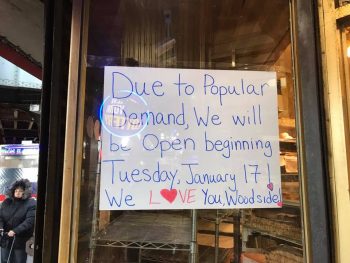 Due to Popular
Demand, We will
be Open beginning
Tuesday, January 17!
We L❤VE You, Woodside!